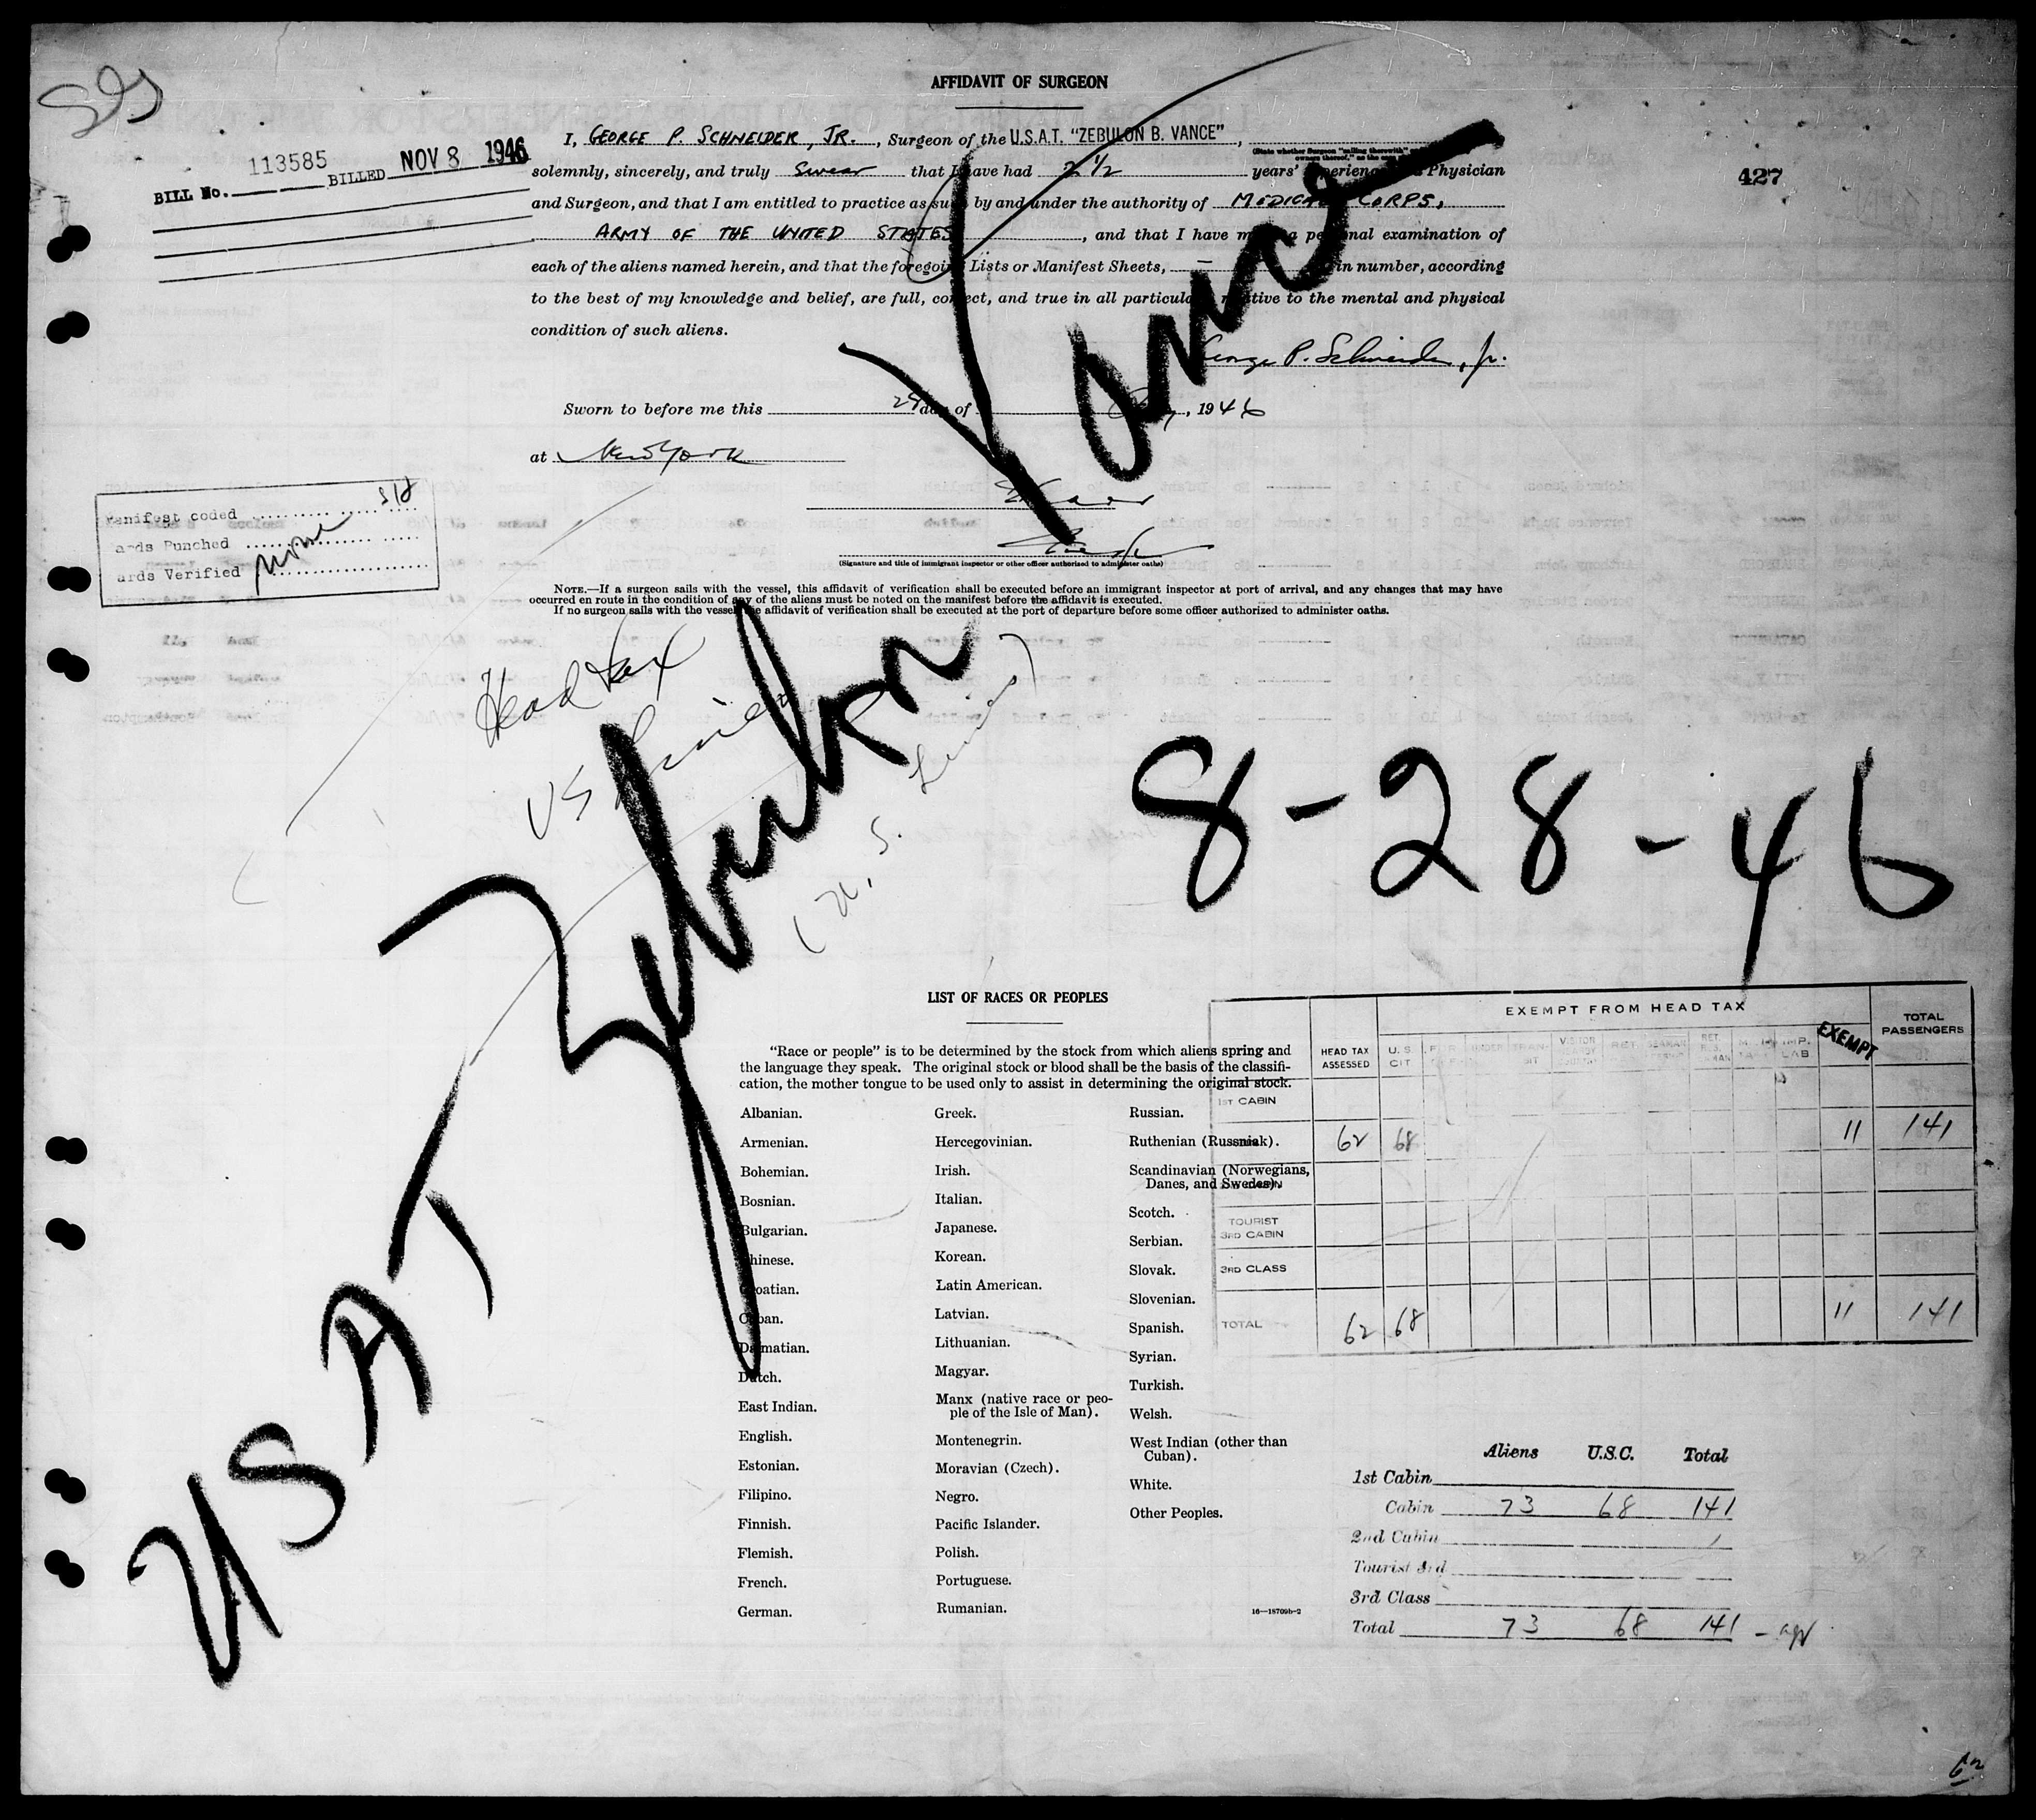 AFFIDAVIT OF SURGEON
I, GEORGE P. SCHNEIDER, JR., Surgeon of the U.S.A.T. "ZEBULON B. VANCE",
solemnly, sincerely, and truly Swear that I have had 2 1/2 years' experience Physician
and Surgeon, and that I am entitled to practice as such by and under the authority of MEDICAL CORPS,
ARMY OF THE UNITED STATES, and that I have made a personal examination of
each of the aliens named herein, and that the foregoing Lists or Manifest Sheets, — in number, according
to the best of my knowledge and belief, are full, correct, and true in all particulars relative to the mental and physical
condition of such aliens.
George P. Schneider, Jr.
Sworn to before me this 28 day of , 1946
at New York
(Signature and title of immigrant inspector or other officer authorized to administer oaths)
NOTE.—If a surgeon sails with the vessel, this affidavit of verification shall be executed before an immigrant inspector at port of arrival, and any changes that may have
occurred en route in the condition of any of the aliens must be noted on the manifest before the affidavit is executed.
If no surgeon sails with the vessel, the affidavit of verification shall be executed at the port of departure before some officer authorized to administer oaths.
BILL No. 113585 BILLED NOV 8 1946
427
Manifest coded
ards Punched
ards Verified
none
Head tax
US Lines
(U.S. Lines)
USAT Zebulon Vance
8-28-46
LIST OF RACES OR PEOPLES
"Race or people" is to be determined by the stock from which aliens spring and
the language they speak. The original stock or blood shall be the basis of the classifi-
cation, the mother tongue to be used only to assist in determining the original stock.
Albanian.
Armenian.
Bohemian.
Bosnian.
Bulgarian.
Chinese.
Croatian.
Cuban.
Dalmatian.
Dutch.
East Indian.
English.
Estonian.
Filipino.
Finnish.
Flemish.
French.
German.
Greek.
Hercegovinian.
Irish.
Italian.
Japanese.
Korean.
Latin American.
Latvian.
Lithuanian.
Magyar.
Manx (native race or peo-
ple of the Isle of Man).
Montenegrin.
Moravian (Czech).
Negro.
Pacific Islander.
Polish.
Portuguese.
Rumanian.
Russian.
Ruthenian (Russniak).
Scandinavian (Norwegians,
Danes, and Swedes).
Scotch.
Serbian.
Slovak.
Slovenian.
Spanish.
Syrian.
Turkish.
Welsh.
West Indian (other than
Cuban).
White.
Other Peoples.
16—18709b-2
EXEMPT FROM HEAD TAX
HEAD TAX ASSESSED U.S. CIT EXEMPT TOTAL PASSENGERS
1ST CABIN
62 68 11 141
TOURIST
3RD CABIN
3RD CLASS
TOTAL 62 68 11 141
Aliens U.S.C. Total
1st Cabin
Cabin 73 68 141
2nd Cabin
Tourist 3rd
3rd Class
Total 73 68 141